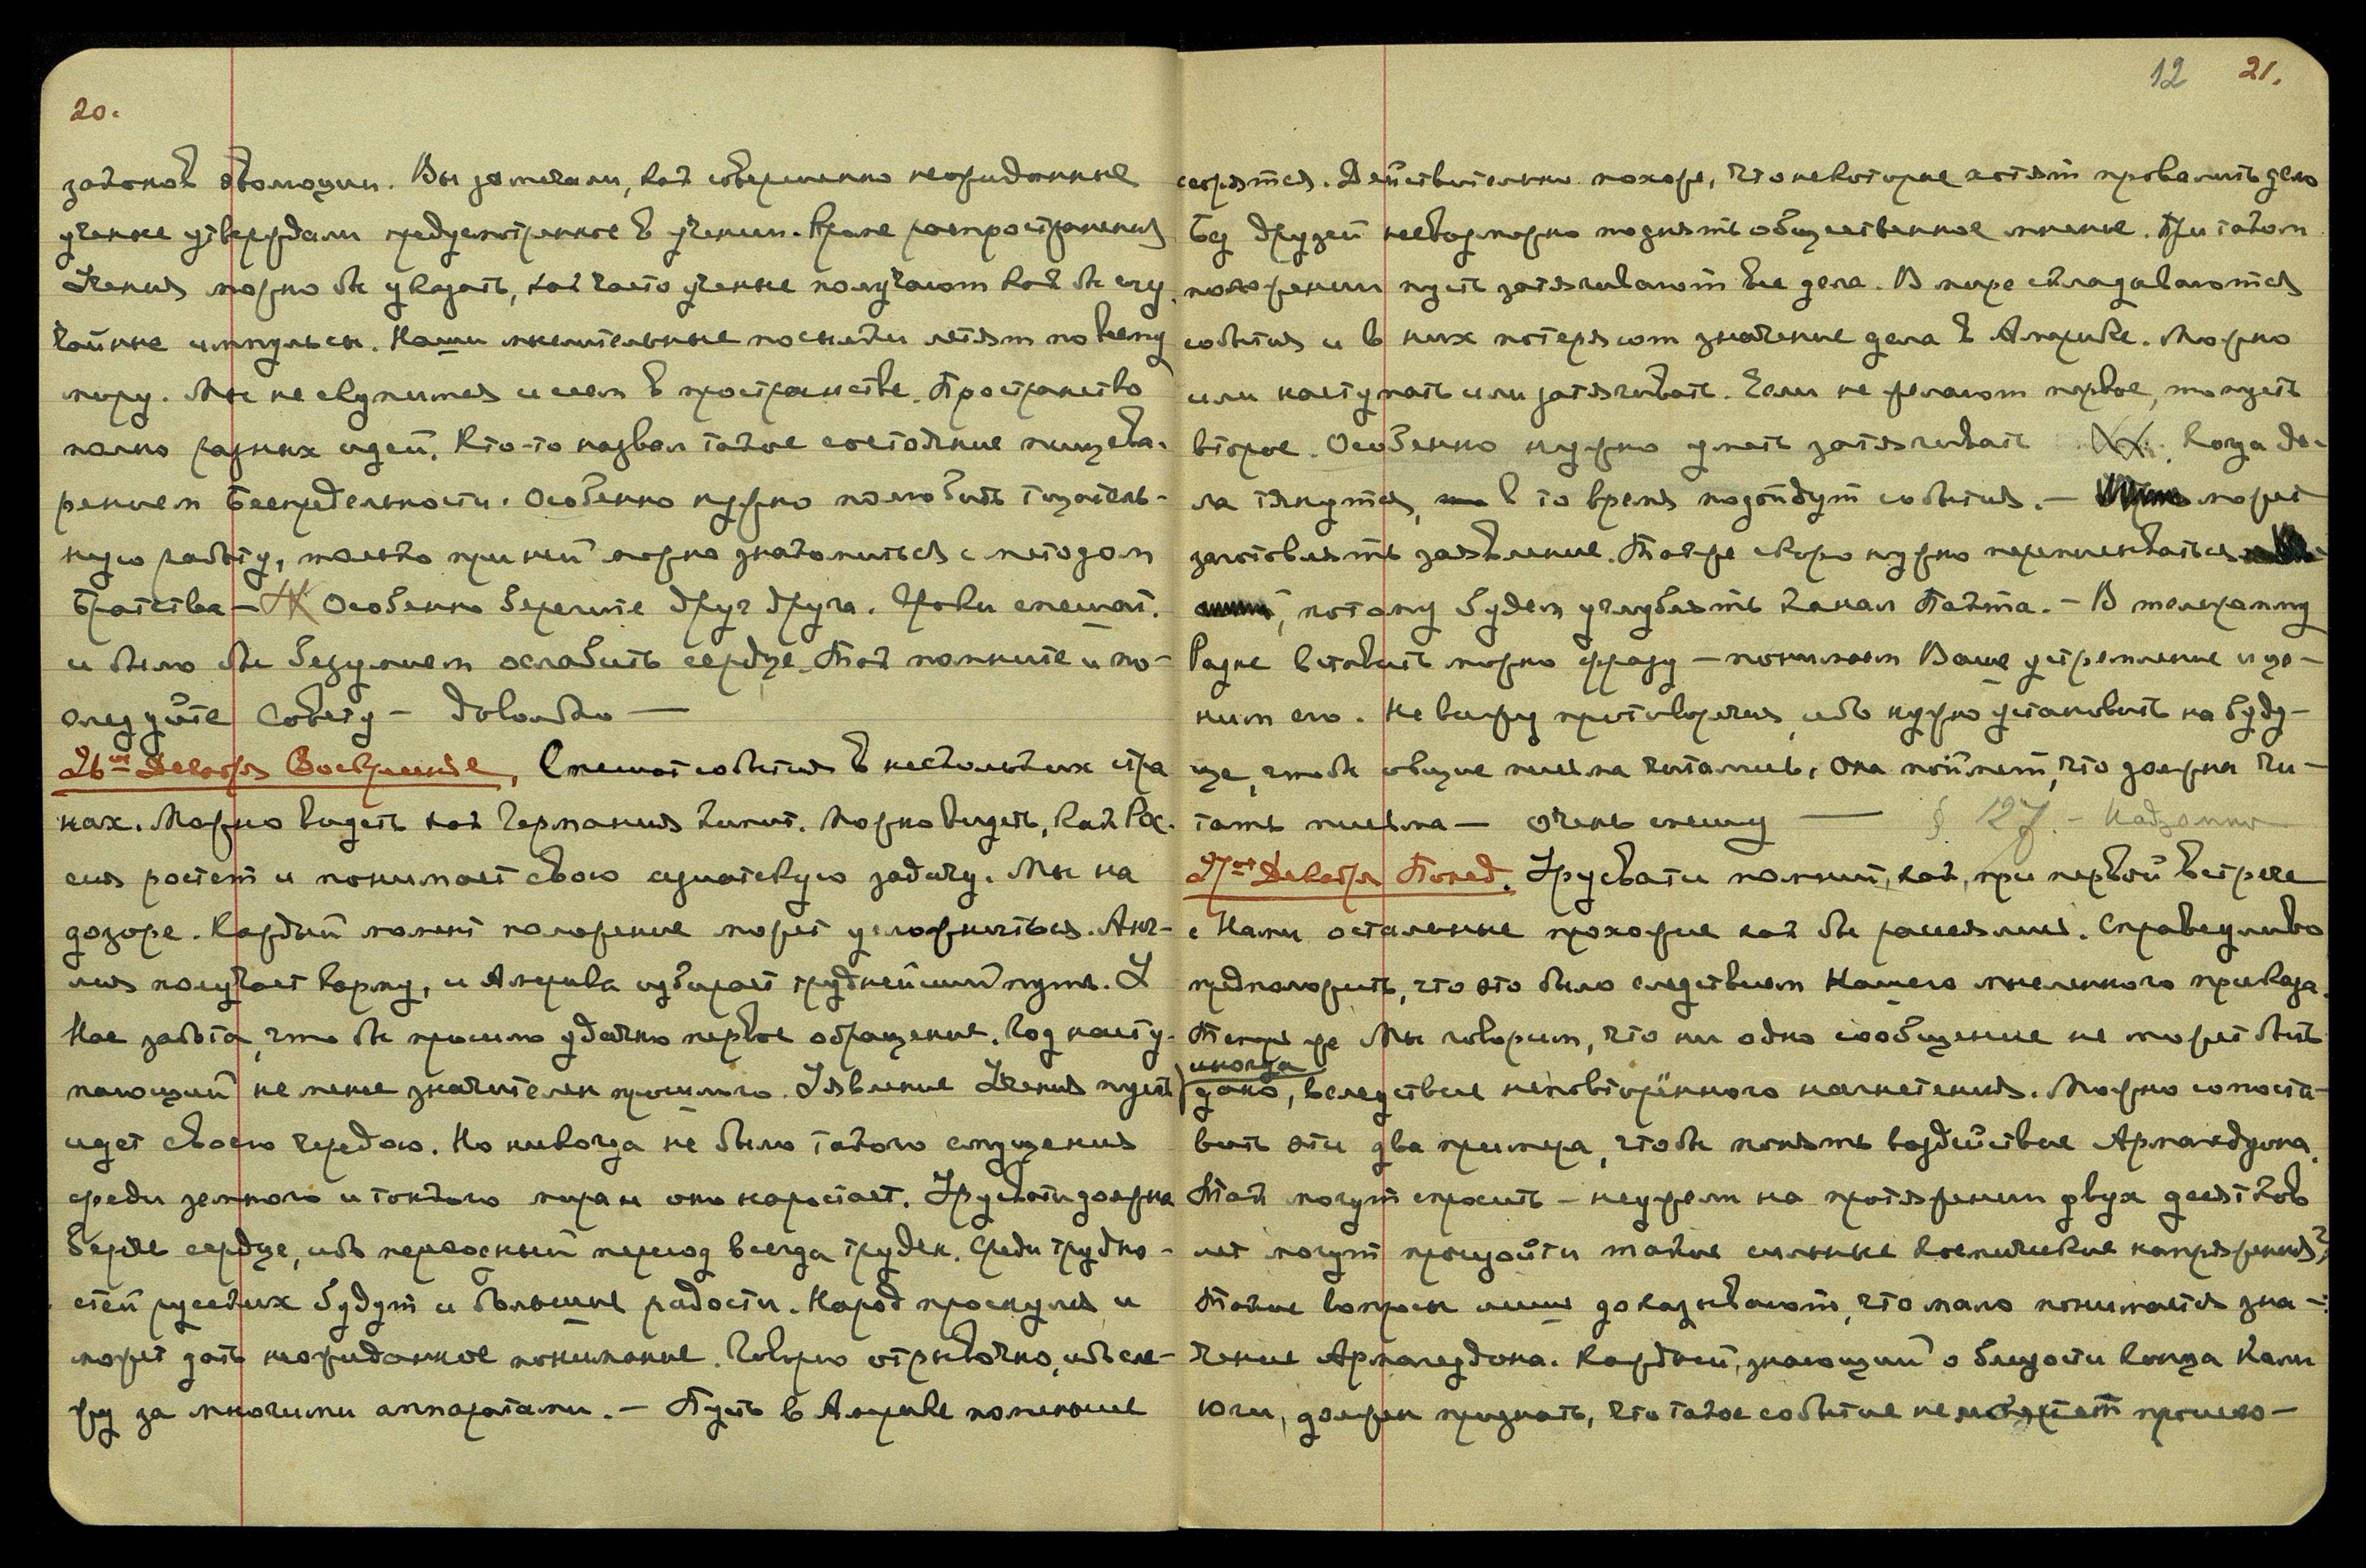 20.
законов эволюции. Вы замечали, как совершенно неожиданные
ученые утверждали предусмотренное в учении. Кроме распространения
Учения можно бы указать, как часто ученые получают как бы слу-
чайные импульсы. Наши мыслительные посылки летят по всему
миру. Мы не скупимся и сеем в пространстве. Пространство
полно разных идей. Кто-то назвал такое состояние пищева-
рением Беспредельности. Особенно нужно полюбить тщатель-
ную работу, только при ней можно знакомиться с методом
Братства — Особенно берегите друг друга. Сроки спешат.
и было бы безумием ослабить сердце. Так помните и по-
следуйте Совету — довольно —
26ое Декабря Воскресенье, Спешат события в нескольких стра
нах. Можно видеть как Германия кипит. Можно видеть, как Рос-
сия растет и понимает свою азиатскую задачу. Мы на
дозоре. Каждый момент положение может усложниться. Анг-
лия получает карму, и Америка избирает труднейший путь. У
Нас забота, что бы прошло удачно первое обращение. Год насту-
пающий не менее значителен прошлого. Явление Учения пусть
идет своею чередою. Но никогда не было такого смущения
среди земного и тонкого мира и оно нарастает. Урусвати должна
беречь сердце, ибо переходный период всегда труден. Среди трудно-
стей русских будут и большие радости. Народ проснулся и
может дать неожиданное понимание. Говорю отрывочно, ибо сле-
жу за многими аппаратами. — Пусть в Америке поменьше
12 21.
ссорятся. Действительно похоже, что некоторые хотят провалить дело
Без друзей невозможно поднять общественное мнение. При таком
положении пусть затягивают все дела. В мире складываются
события и в них потеряют значение дела в Америке. Можно
или наступать или затягивать. Если не желают первое, то пусть
второе. Особенно нужно уметь затягивать. Когда де-
ла тянутся, в то время подойдут события. — может
заготовлять заявление. Также скоро нужно переписываться
, потому будем углублять канал Пакта. — В телеграмму
Радне вставить можно фразу — понимаем Ваше устремление и це-
ним его. Не вижу противоречия, ибо нужно установить на буду-
ще, чтобы общие письма читались. Она поймет, что должна чи-
тать письма — очень спешу — § 127. — Надземное
27ое Декабря Понед. Урусвати помнит, как, при первой встрече
с Нами остальные прохожие как бы рассеялись. Справедливо
предположить, что это было следствием Нашего мысленного приказа.
Теперь же Мы говорим, что ни одно сообщение не может быть
иногда
дано, вследствие неповторённого нагнетения. Можно сопоста-
вить эти два примера, чтобы понять воздействие Армагеддона.
Так могут спросить — неужели на протяжении двух десятков
лет могут произойти такие сильные космические напряжения?
Такие вопросы лишь доказывают, что мало понимается зна-
чение Армагеддона. Каждый, знающий о близости конца Кали
Юги, должен признать, что такое событие не может произо-